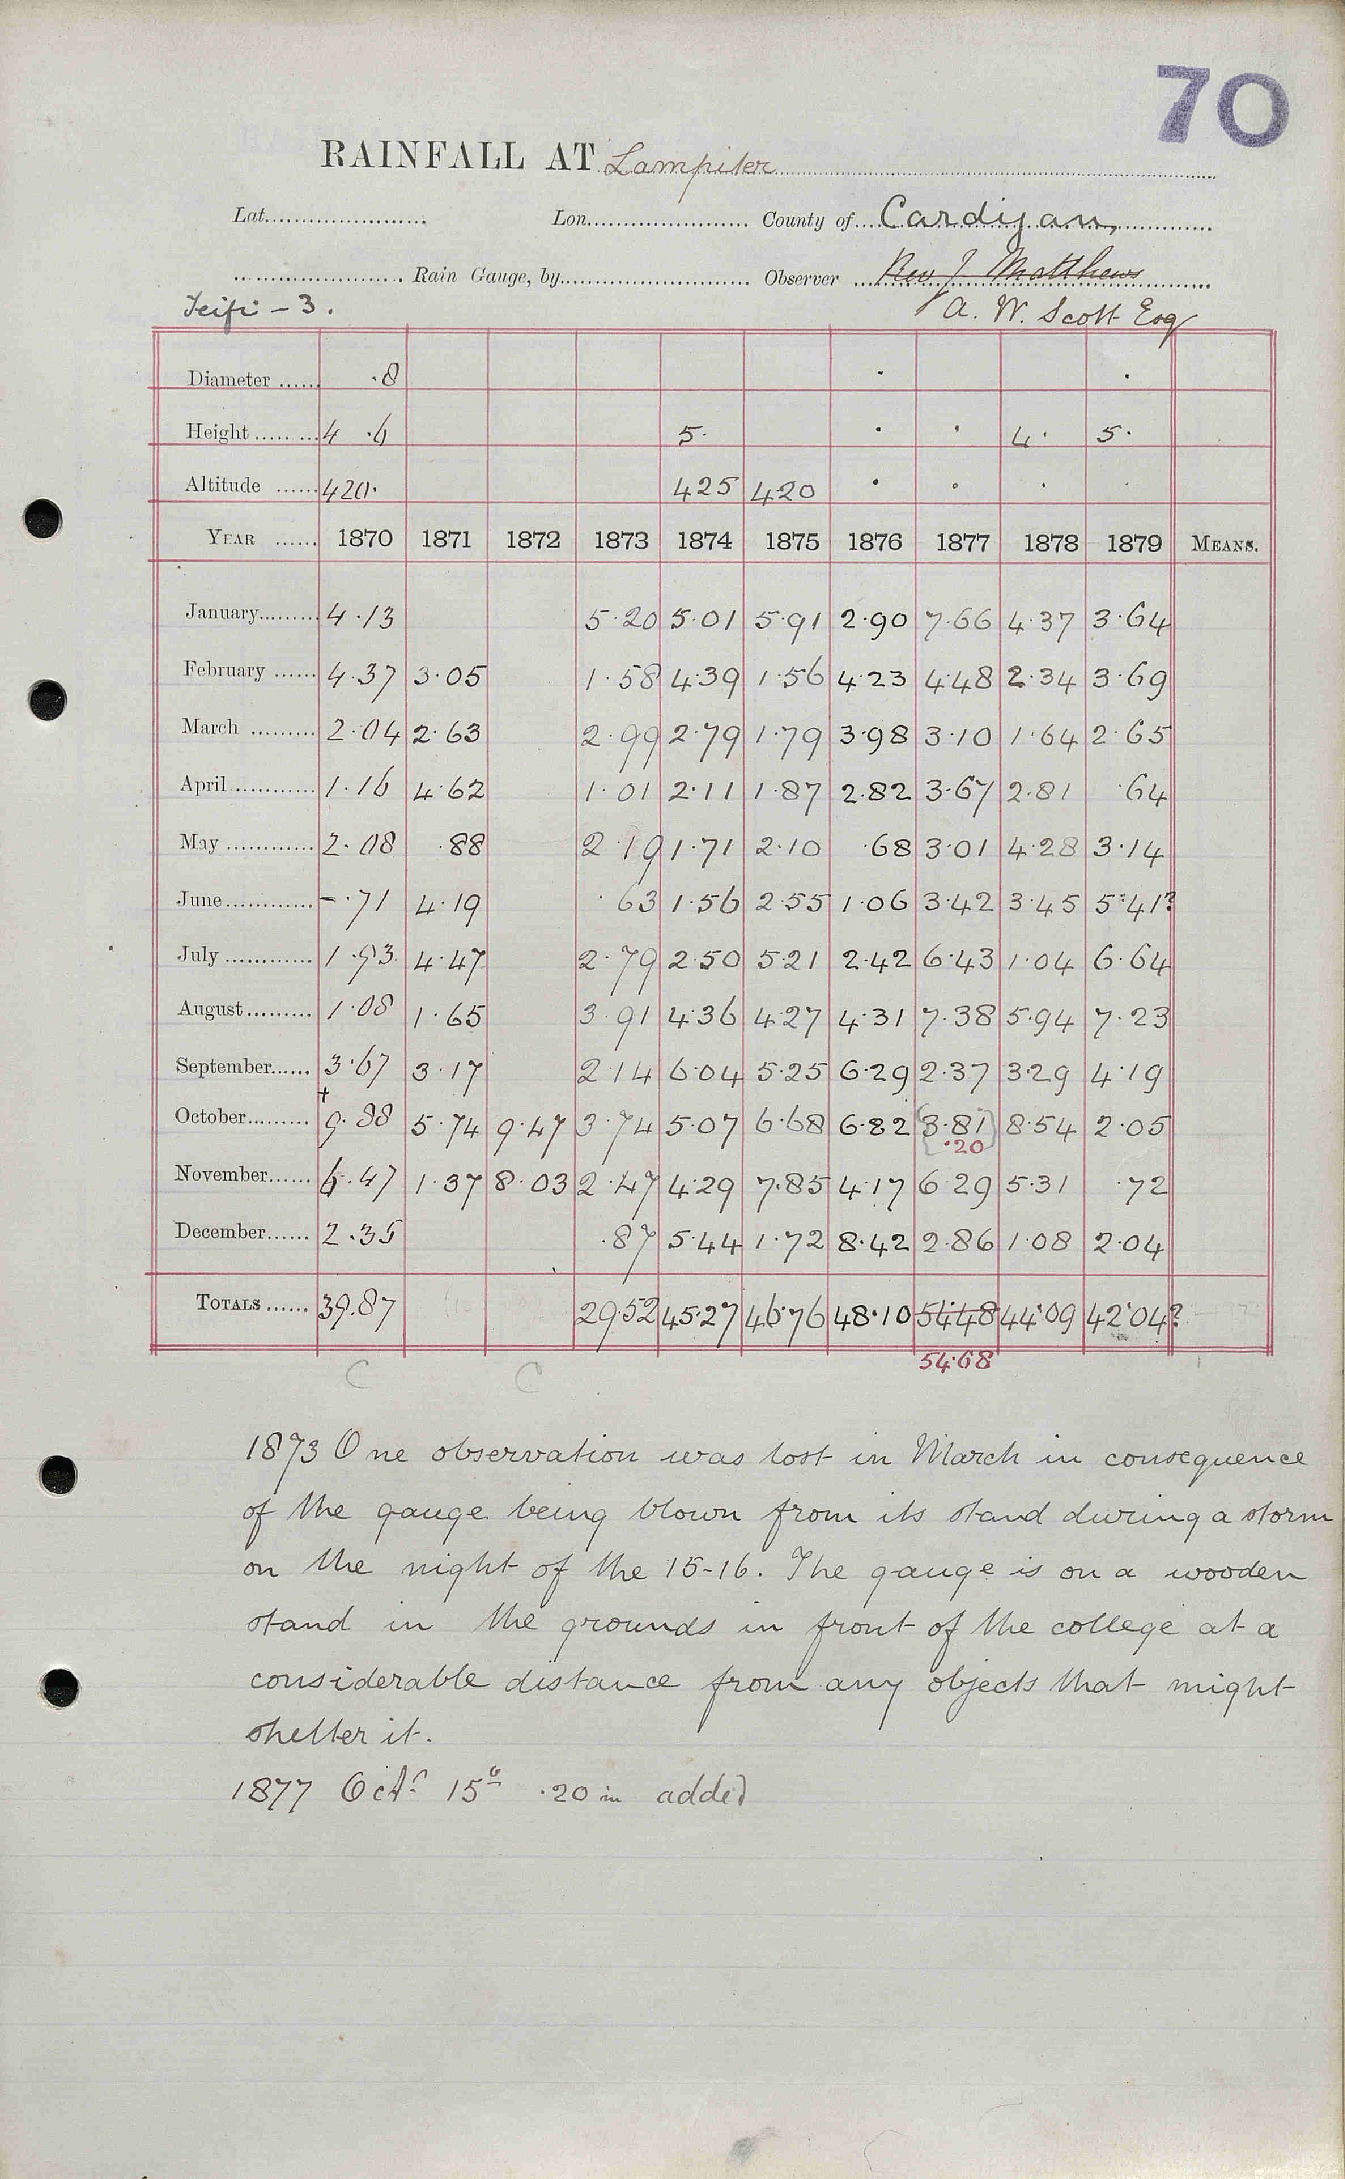 70
RAINFALL AT Lampeter
Lat. Lon. County of Cardigan,
Rain Gauge, by Observer Rev J Matthews
Teifi - 3. A. W. Scott Esq
Diameter ...... ·8 · ·
Height ......... 4 ·6 5· · · 4· 5·
Altitude ...... 420· 425 420 · · · ·
YEAR ...... 1870 1871 1872 1873 1874 1875 1876 1877 1878 1879 MEANS.
January......... 4·13 5·20 5·01 5·91 2·90 7·66 4·37 3·64
February ...... 4·37 3·05 1·58 4·39 1·56 4·23 4·48 2·34 3·69
March ......... 2·04 2·63 2·99 2·79 1·79 3·98 3·10 1·64 2·65
April ............ 1·16 4·62 1·01 2·11 1·87 2·82 3·67 2·81 ·64
May ............ 2·08 ·88 2·19 1·71 2·10 ·68 3·01 4·28 3·14
June............ -·71 4·19 ·63 1·56 2·55 1·06 3·42 3·45 5·41?
July ............ 1·93 4·47 2·79 2·50 5·21 2·42 6·43 1·04 6·64
August......... 1·08 1·65 3·91 4·36 4·27 4·31 7·38 5·94 7·23
September...... 3·67 3·17 2·14 6·04 5·25 6·29 2·37 3·29 4·19
October......... +9·88 5·74 9·47 3·74 5·07 6·68 6·82 {3·81} 8·54 2·05
·20
November...... 6·47 1·37 8·03 2·47 4·29 7·85 4·17 6·29 5·31 ·72
December...... 2·35 ·87 5·44 1·72 8·42 2·86 1·08 2·04
TOTALS ...... 39·87 29·52 45·27 46·76 48·10 54·48 44·09 42·04?
54·68
C C
1873 One observation was lost in March in consequence
of the gauge being blown from its stand during a storm
on the night of the 15-16. The gauge is on a wooden
stand in the grounds in front of the college at a
considerable distance from any objects that might
shelter it.
1877 Octr 15th ·20 in added